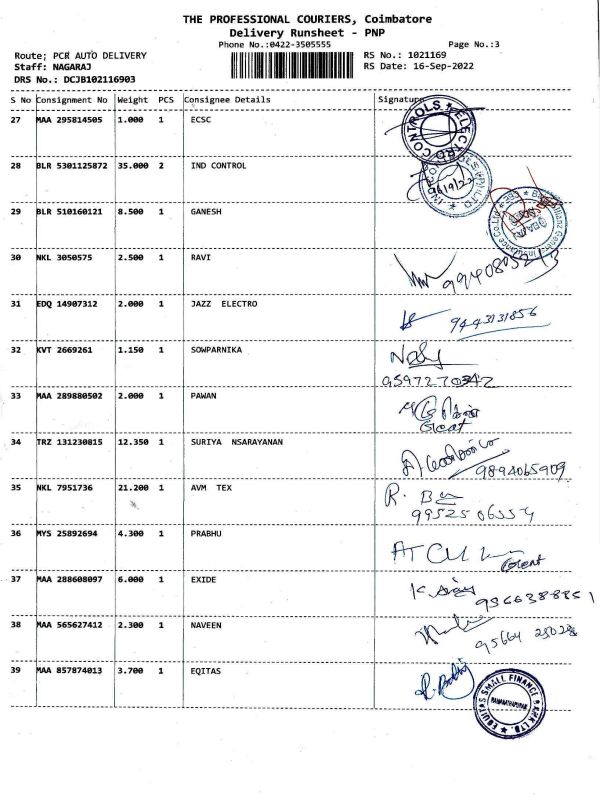 THE PROFESSIONAL COURIERS, Coimbatore
Delivery Runsheet - PNP
Phone No.:0422-3505555 Page No.:3
Route; PCR AUTO DELIVERY RS No.: 1021169
Staff: NAGARAJ RS Date: 16-Sep-2022
DRS No.: DCJB102116903
S No Consignment No Weight PCS Consignee Details Signature
27 MAA 295814505 1.000 1 ECSC
28 BLR 5301125872 35.000 2 IND CONTROL
29 BLR 510160121 8.500 1 GANESH
30 NKL 3050575 2.500 1 RAVI
31 EDQ 14907312 2.000 1 JAZZ ELECTRO
9443131856
32 KVT 2669261 1.150 1 SOWPARNIKA
9597270342
33 MAA 289880502 2.000 1 PAWAN
34 TRZ 131230815 12.350 1 SURIYA NSARAYANAN
9894065909
35 NKL 7951736 21.200 1 AVM TEX
36 MYS 25892694 4.300 1 PRABHU
37 MAA 288608097 6.000 1 EXIDE
38 MAA 565627412 2.300 1 NAVEEN
39 MAA 857874013 3.700 1 EQITAS
EQUITAS SMALL FINANCE BANK LTD.